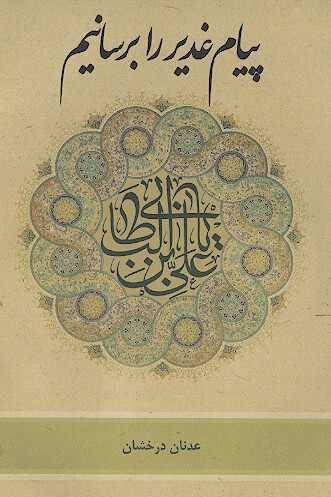 پیام غدیر را برسانیم
یا علی بن ابی طالب
عدنان درخشان